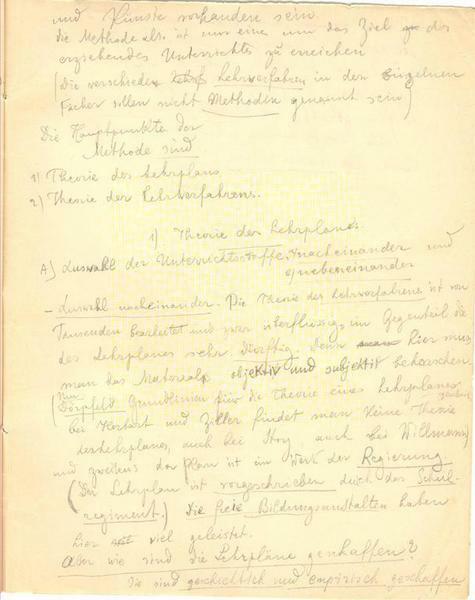 und Künste vorhanden sein
die Methode als. ist nur eine um das Ziel des
erziehendes Unterrichts zu erreichen
(die verschieden Lehrverfahren in den Einzelnen
Fächer sollen nicht Methoden genannt sein)
Die Hauptpunkte der
Methode sind
1) Theorie des Lehrplans
2) Theorie der Lehrverfahrens.
1) Theorie des Lehrplanes.
A) Auswahl der Unterrichtsstoffe, nacheinander und
nebeneinander
– Auswahl nacheinander. Die Theorie des Lehrverfahrens ist von
Tausenden bearbeitet und zwar überflüssig im Gegenteil die
des Lehrplanes sehr dürftig. Denn hier muss
man das Material objektiv und subjektiv beherschen
(Nur Dörpfeld Grundlinien für die Theorie eines Lehrplanes
bei Herbart und Ziller findet man keine Theorie
des Lehrplanes, auch bei Stoy auch bei Willmann)
und zweitens der Plan ist ein Werk der Regierung
(Der Lehrplan ist vorgeschrieben durch das Schul-
regiment.) Die freie Bildungsanstalten haben
hier viel geleistet.
Aber wie sind die Lehrpläne geschaffen?
Sie sind geschichtlich und empirisch geschaffen